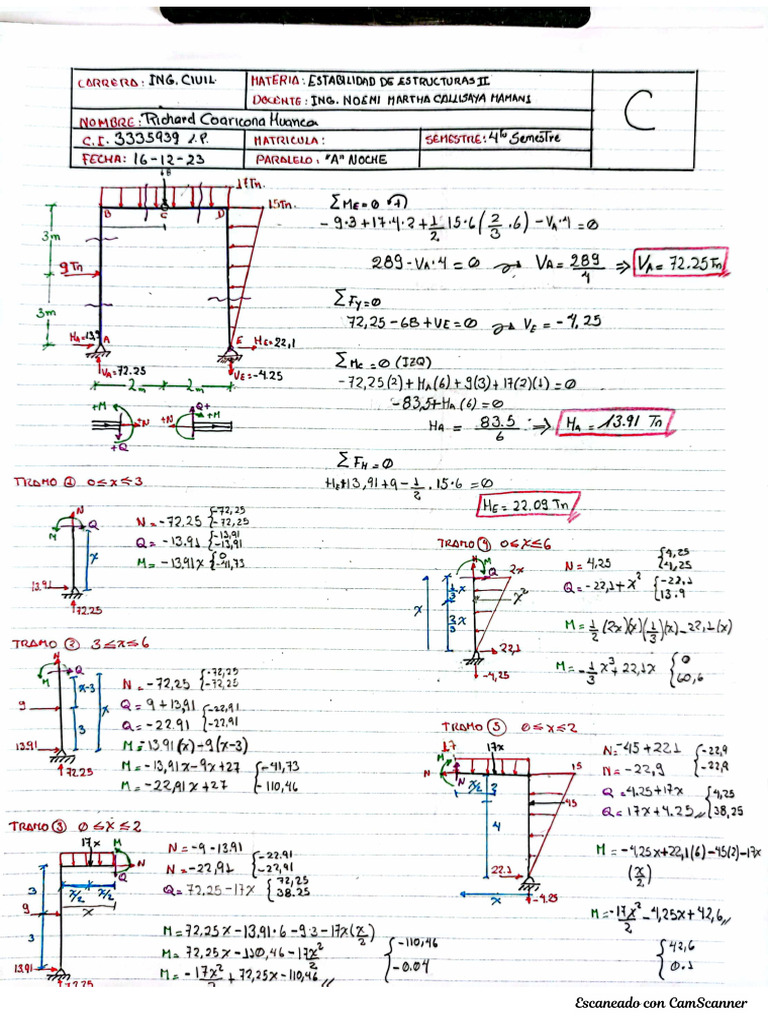 CARRERA: ING. CIVIL
MATERIA: ESTABILIDAD DE ESTRUCTURAS II
DOCENTE: ING. NOEMI MARTHA CALLISAYA MAMANI
C
NOMBRE: Richard Coaricona Huanca
C.I. 3335939 L.P.
MATRICULA:
SEMESTRE: 4to Semestre
FECHA: 16-12-23
PARALELO: "A" NOCHE
68
17Tn.
B
C
D
15Tn.
3m
9Tn
3m
HA=13,9
A
E
HE=22,1
VA=72.25
VE=-4.25
2m
2m
+M
+N
+Q
+N
Q+
+M
ΣME=0
-9·3+17·4·2+1/2 15·6(2/3·6)-VA·4=0
289-VA·4=0 → VA=289/4 ⇒ VA=72.25Tn
ΣFy=0
72,25-68+VE=0 → VE=-4,25
ΣMc=0 (IZQ)
-72,25(2)+HA(6)+9(3)+17(2)(1)=0
-83,5+HA(6)=0
HA=83.5/6 ⇒ HA=13.91 Tn
ΣFH=0
HE+13,91+9-1/2.15·6=0
HE=22.09Tn
TRAMO 1 0≤x≤3
N
M
Q
x
13.91
72.25
N=-72.25 {-72,25 -72,25
Q=-13.91 {-13,91 -13,91
M=-13,91x {0 -41,73
TRAMO 2 3≤x≤6
N
M
Q
x-3
x
9
3
13.91
72.25
N=-72,25 {-72,25 -72,25
Q=9+13,91
Q=-22.91 {-22,91 -22,91
M=13.91(x)-9(x-3)
M=-13,91x-9x+27 {-41,73
M=-22,91x+27 -110,46
TRAMO 3 0≤x≤2
17x
M
N
Q
3
x/2
x/2
x
9
3
13.91
72.25
N=-9-13.91
N=-22,91 {-22.91 -22,91
Q=72,25-17x {72,25 38.25
M=72,25x-13,91·6-9·3-17x(x/2)
M=72,25x-110,46-17x²/2 {-110,46
M=-17x²/2+72,25x-110,46,, -0.04
TRAMO 4 0≤x≤6
M
Q
2x
1/3x
x²
x
2/3x
22,1
-4,25
N=4,25 {4,25 4,25
Q=-22,1+x² {-22,1 13.9
M=1/2(2x)(x)(1/3)(x)-22,1(x)
M=-1/3x³+22,1x {0 60,6
TRAMO 5 0≤x≤2
17
17x
M
N
N
x/2
2
15
45
4
22.1
-4.25
x
N=-45+22,1 {-22,9
N=-22,9 -22,9
Q=4.25+17x {4,25
Q=17x+4.25 38,25
M=-4,25x+22,1(6)-45(2)-17x
(x/2)
M=-17x²/2-4,25x+42,6,,
{42,6
0.1
Escaneado con CamScanner